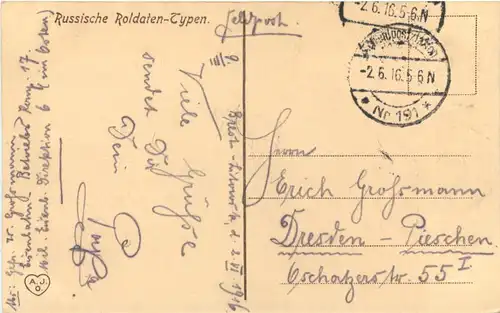 Russische Roldaten-Typen.
Feldpost.
-2.6.16.5-6N
-2.6.16.5-6N
* Nr 191 *
Brest-Litowsk, d. 2. VI. 1916
Viele Grüsse
sendet Dir
Dein
Herrn
Erich Großmann
Dresden - Pieschen
Oschatzerstr. 55 I
Abs: Gefr. W. Großmann
Eisenbahn-Betriebs Komp 17
Mil. Eisenb. Direktion 6 (im Osten)
A.J.
O.